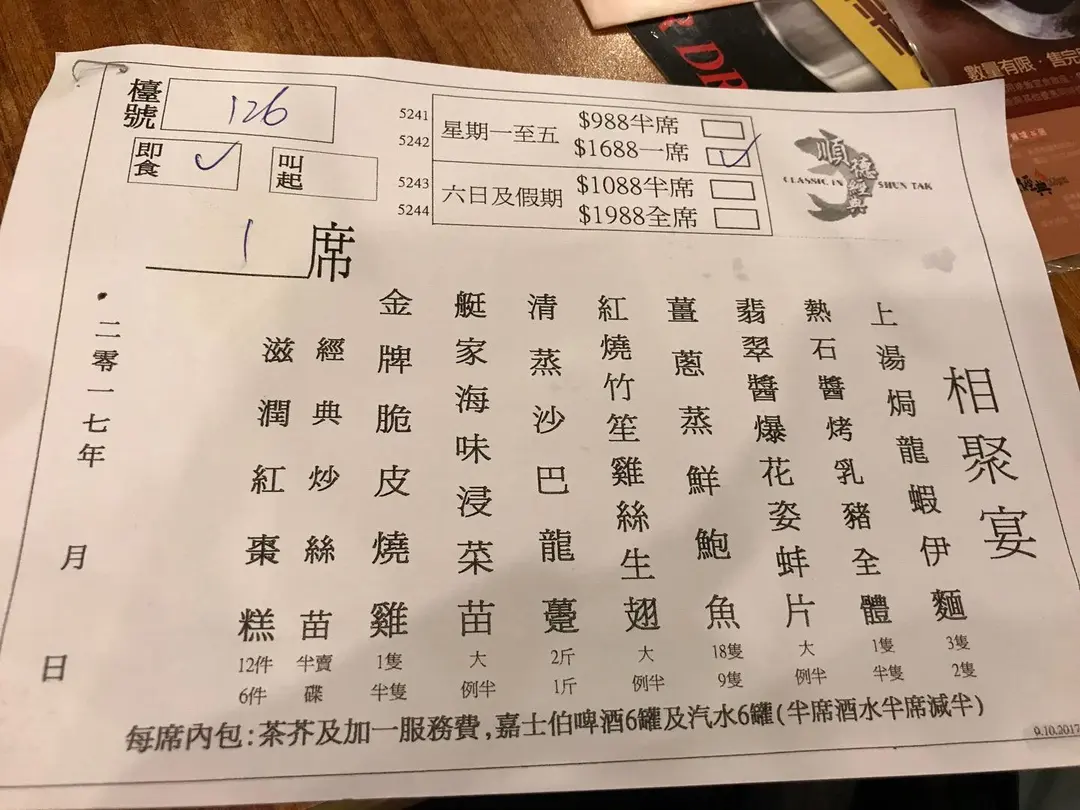 檯號 126
即食 ✓
叫起
5241
5242
5243
5244
星期一至五
$988半席
$1688一席 ✓
六日及假期
$1088半席
$1988全席
順德經典
CLASSIC IN SHUN TAK
1 席
相聚宴
上湯焗龍蝦伊麵 3隻 2隻
熱石醬烤乳豬全體 1隻 半隻
翡翠醬爆花姿蚌片 大 例半
薑蔥蒸鮮鮑魚 18隻 9隻
紅燒竹笙雞絲生翅 大 例半
清蒸沙巴龍躉 2斤 1斤
艇家海味浸菜苗 大 例半
金牌脆皮燒雞 1隻 半隻
經典炒絲苗 半賣 碟
滋潤紅棗糕 12件 6件
二零一七年 月 日
每席內包:茶芥及加一服務費,嘉士伯啤酒6罐及汽水6罐(半席酒水半席減半)
9.10.2017
數量有限·售完